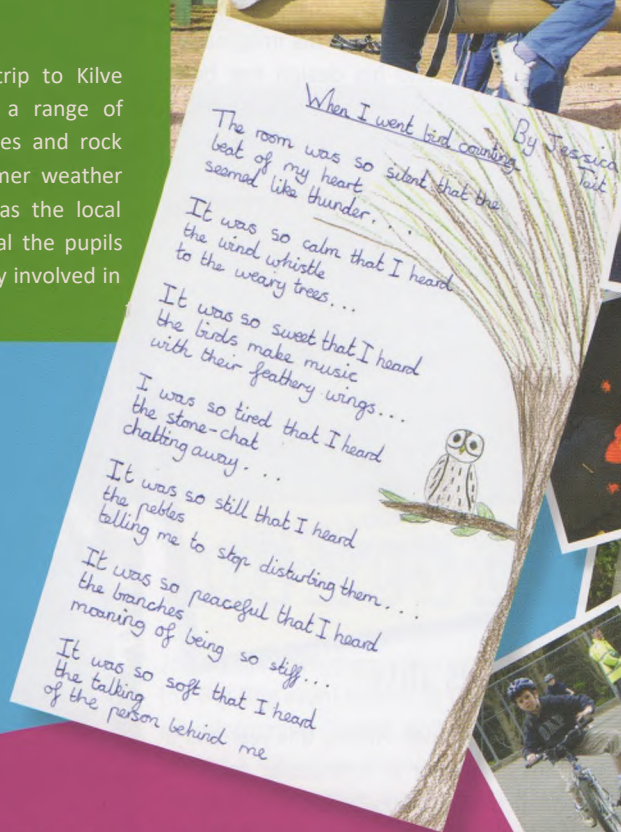 trip to Kilve
a range of
es and rock
mer weather
as the local
al the pupils
y involved in
When I went bird counting
By Jessica
Tait
The room was so silent that the
beat of my heart
seemed like thunder. . .
It was so calm that I heard
the wind whistle
to the weary trees...
It was so sweet that I heard
the birds make music
with their feathery wings...
I was so tired that I heard
the stone-chat
chatting away. . .
It was so still that I heard
the pebles
telling me to stop disturbing them. . .
It was so peaceful that I heard
the branches
moaning of being so stiff...
It was so soft that I heard
the talking
of the person behind me